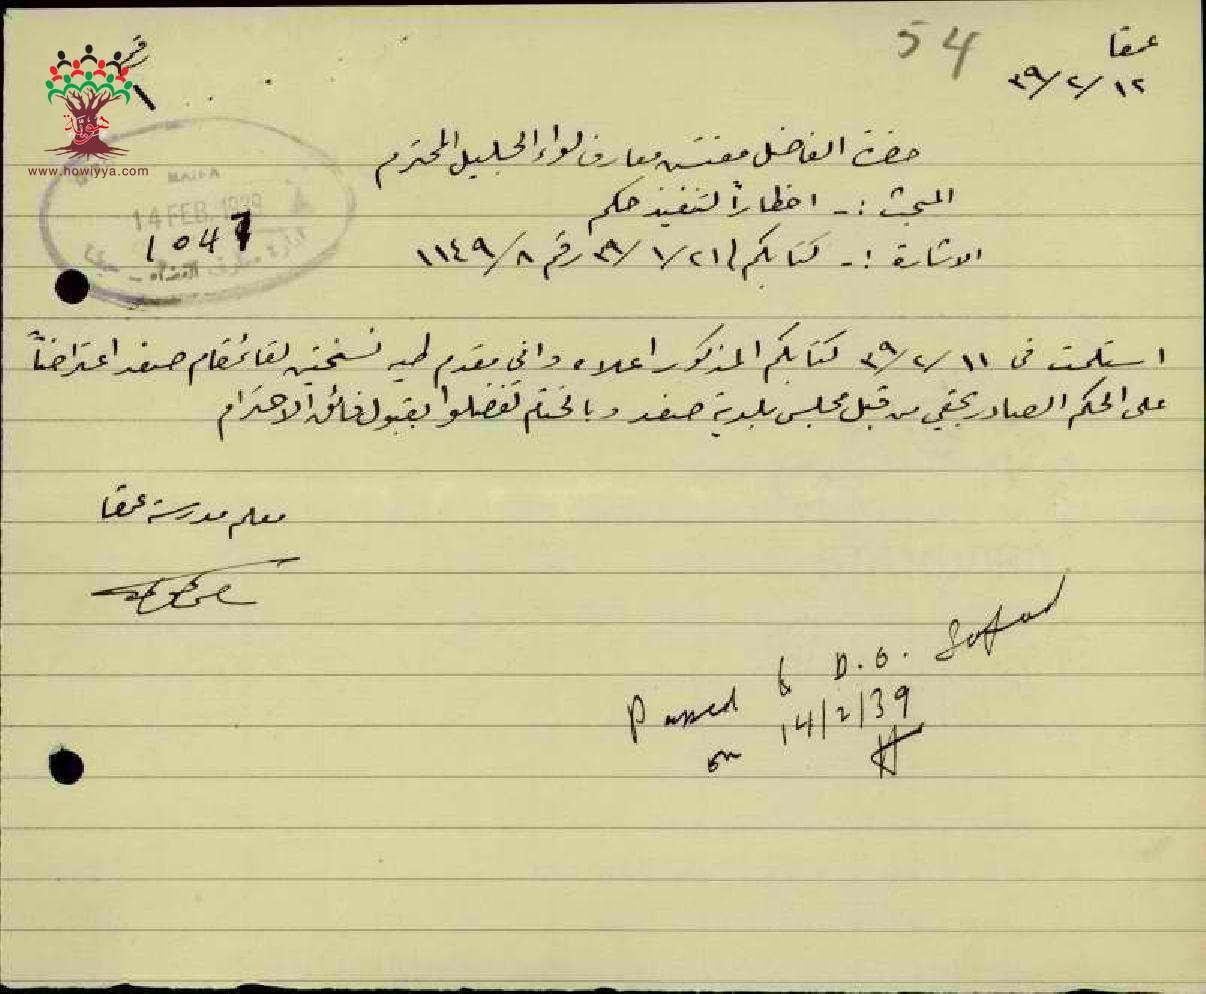 54
عمقا
٣٩/٢/١٢
هوية
www.howiyya.com
HAIFA
14 FEB. 1939
1047
حضرة الفاضل مفتش معارف لواء الجليل المحترم
المبحث :ـ اخطاراً لتنفيذ حكم
الاشارة :ـ كتابكم ٣٩/١/٢١ رقم ١١٤٩/٨
استلمت في ٣٩/٢/١١ كتابكم المذكور اعلاه واني مقدم طيه نسختين لقائمقام صفد اعتراضاً
على الحكم الصادر بحقي من قبل مجلس بلدية صفد وبالختام تفضلوا بقبول فائق الاحترام
معلم مدرسة عمقا
Passed to D.O. Safad
on 14/2/39